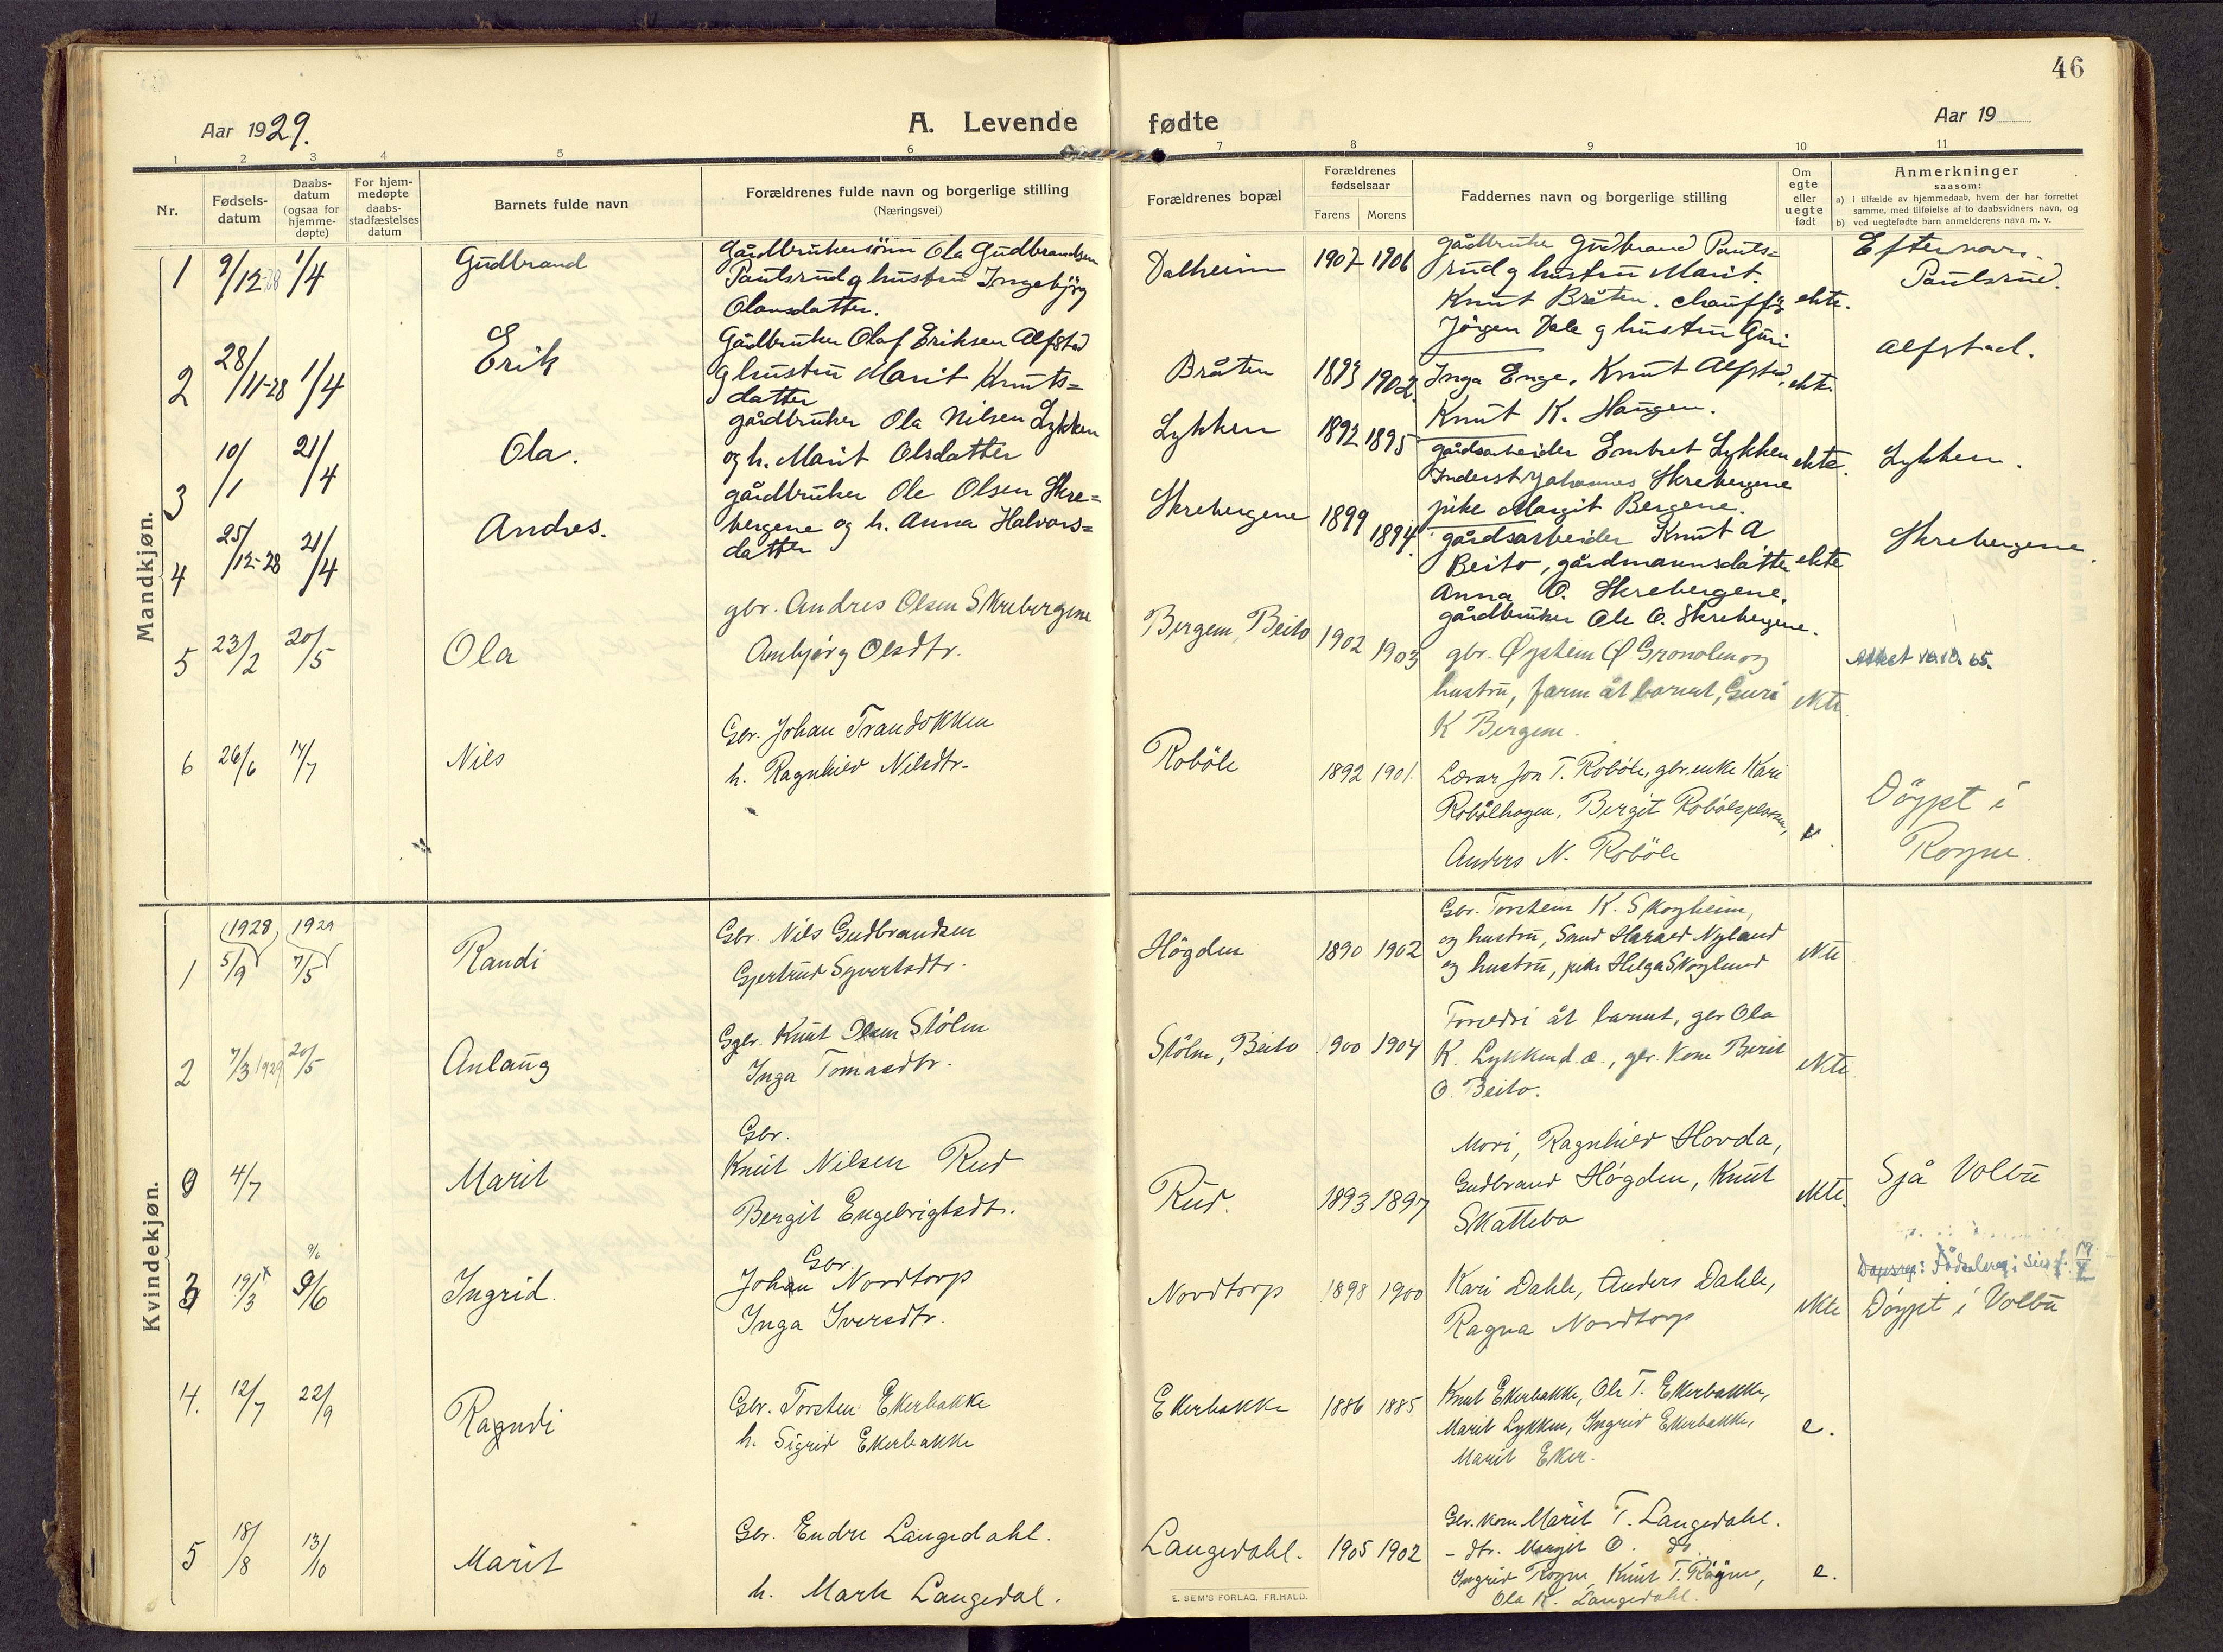 46
Aar 1929.
A. Levende fødte
Aar 19
1 2 3 4 5 6 7 8 9 10 11
Nr.
Fødsels-
datum
Daabs-
datum
(ogsaa for
hjemme-
døpte)
For hjem-
medøpte
daabs-
stadfæstelses
datum
Barnets fulde navn
Forældrenes fulde navn og borgerlige stilling
(Næringsvei)
Forældrenes bopæl
Forældrenes
fødselsaar
Farens Morens
Faddernes navn og borgerlige stilling
Om
egte
eller
uegte
født
Anmerkninger
saasom:
a) i tilfælde av hjemmedaab, hvem der har forrettet
samme, med tilføielse af to daabsvidners navn, og
b) ved uegtefødte barn anmelderens navn m. v.
Mandkjøn.
1 9/12-28 1/4 Gudbrand
Gårdbrukersønn Ola Gudbrandsen
Paulsrud og hustru Ingebjørg
Olausdatter.
Dalheim 1907 1906
gårdbruker Gudbrand Pauls=
rud og hustru Marit.
Knut Bråten.
Jörgen Dale og hustru Guri
ekte.
Efternavn.
Paulsrud.
2 28/11-28 1/4 Erik
Gårdbruker Olaf Eriksen Alfstad
og hustru Marit Knuts=
datter
Bråten 1893 1902.
Inga Enge, Knut Alfstad,
Knut K. Haugen.
ekte.
Alfstad.
3 10/1 21/4 Ola.
gårdbruker Ola Nilsen Lykken
og h. Marit Olsdatter
Lykken 1892 1895
gårdsarbeider Embret Lykken
Inderst Johannes Skrebergene
pike Margit Bergene.
ekte.
Lykken.
4 25/12-28 21/4 Andres.
gårdbruker Ole Olsen Skre=
bergene og h. Anna Halvors=
datter
Skrebergene 1899 1894.
gårdsarbeider Knut A
Beito, gårdmannsdatter
Anna O. Skrebergene,
gårdbruker Ole O. Skrebergene.
ekte
Skrebergene
5 23/2 20/5 Ola
gbr. Andres Olsen Skrebergene
Ambjørg Olsdtr.
Bergene, Beito 1902 1903
gbr. Øystein Ø Gronolen og
hustru, farm åt barnet, Guri
K Bergene.
ekte.
6 26/6 14/7 Nils
Gbr. Johan Trandokken
h. Ragnhild Nilsdtr.
Robøle 1892 1901.
Lærar Jon T. Robøle, gbr.enke Kari
Robølhagen, Bergit
Anders N. Robøle
Döypt i
Rogne.
Kvindekjøn.
1928 1929
1 5/9 7/5 Randi
Gbr. Nils Gudbrandsen
Gjertrud Syvertsdtr.
Högden 1890 1902
Gbr. Torstein K. Skogheim,
og hustru, Harald Nyland
og hustru, pike Helga Skoglund
ekte
2 7/3 1929 20/5 Anlaug
Gbr. Knut Olsen Stölen
Inga Tomasdtr.
Stölen, Beito 1900 1904
åt barnet, gbr Ola
K. Lykken d. æ., gbr. kone Berit
O. Beito.
ekte.
0 4/7 Marit
Gbr.
Knut Nilsen Rud
Bergit Engebrigtsdtr.
Rud. 1893 1897
Mori, Ragnhild Hovda,
Gudbrand Högden, Knut
Skattebo
ekte.
Sjå Volbu
9/6
3 19/3 9/6 Ingrid.
Gbr.
Johan Nordtorp
Inga Iversdtr.
Nordtorp 1898 1900
Kari Dahle, Anders Dahle,
Ragna Nordtorp
ekte
Döypt i Volbu
4. 12/7 22/9 Ragndi
Gbr. Torsten Ekerbakke
h. Sigrid Ekerbakke
Ekerbakke 1886 1885
Knut Ekerbakke, Ole T. Ekerbakke,
Marit Lykken, Ingrid Ekerbakke,
Marit Eker.
e.
5 18/8 13/10 Marit
Gbr. Endre Langedahl.
h. Marit Langedal.
Langedahl. 1905 1902
Gbr. kone Marit T. Langedahl.
- dtr. Margit O. do
Ingrid Rogne, Knut T. Rogne,
Ola K. Langedahl.
e.
E. SEM'S FORLAG, FR.HALD.